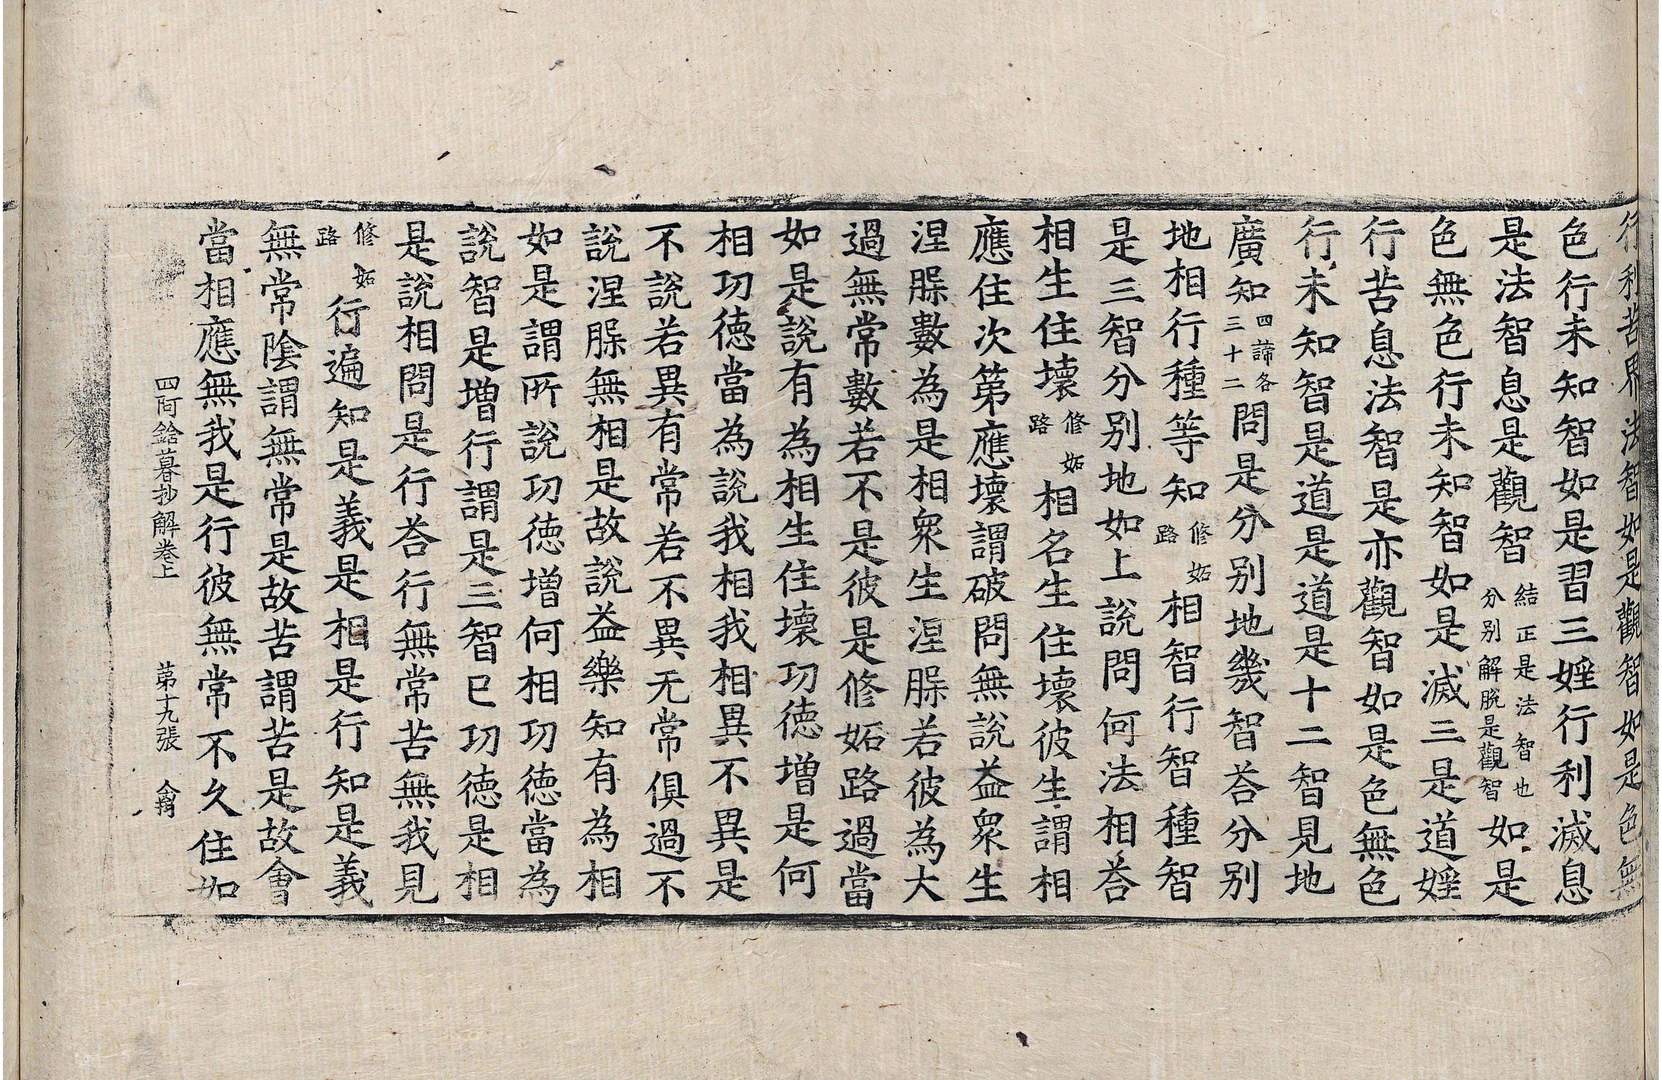 行利苦界法智如是觀智如是色無
色行未知智如是習三婬行利滅息
是法智息是觀智結正是法智也分別解脫是觀智如是
色無色行未知智如是滅三是道婬
行苦息法智是亦觀智如是色無色
行未知智是道是道是十二智見地
廣知四諦各三十二問是分別地幾智荅分別
地相行種等知修妬路相智行智種智
是三智分別地如上說問何法相荅
相生住壞修妬路相名生住壞彼生謂相
應住次第應壞謂破問無說益眾生
涅槃數為是相眾生涅槃若彼為大
過無常數若不是彼是修妬路過當
如是說有為相生住壞功德增是何
相功德當為說我相我相異不異是
不說若異有常若不異无常俱過不
說涅槃無相是故說益樂知有為相
如是謂所說功德增何相功德當為
說智是增行謂是三智已功德是相
是說相問是行荅行無常苦無我見
修妬路行遍知是義是相是行知是義
無常陰謂無常是故苦謂苦是故會
當相應無我是行彼無常不久住如
四阿鋡暮抄解卷上 第十九張